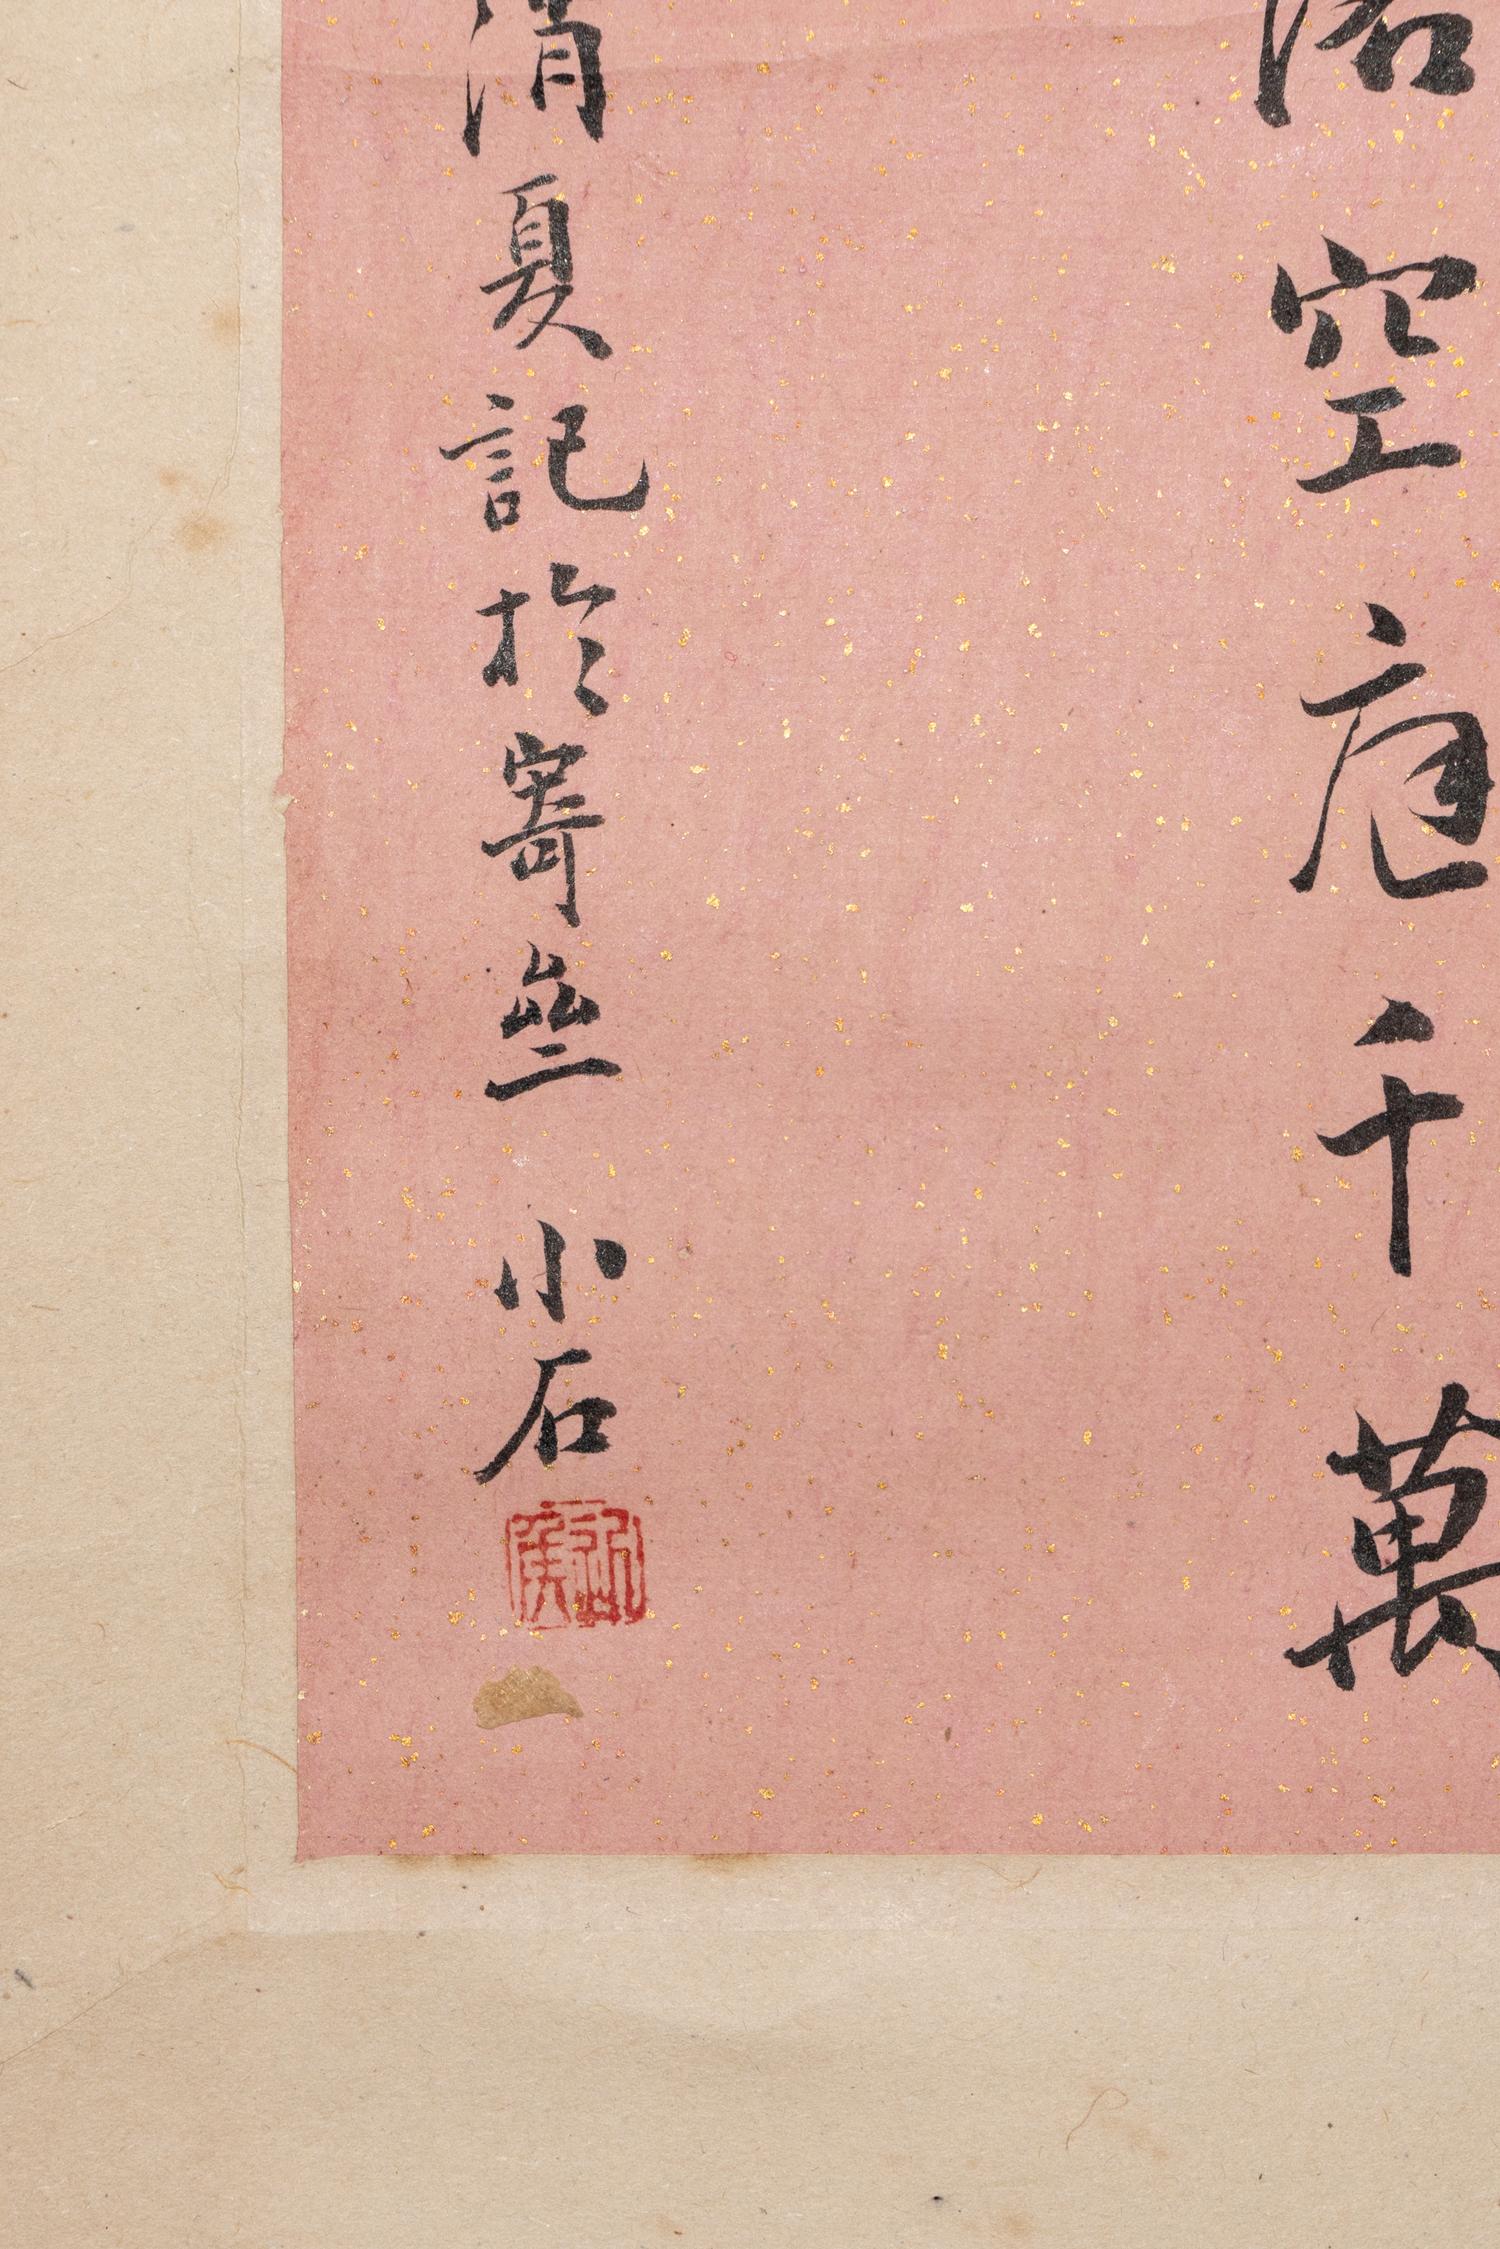 落空庭千萬
清夏記於寄壘
小石